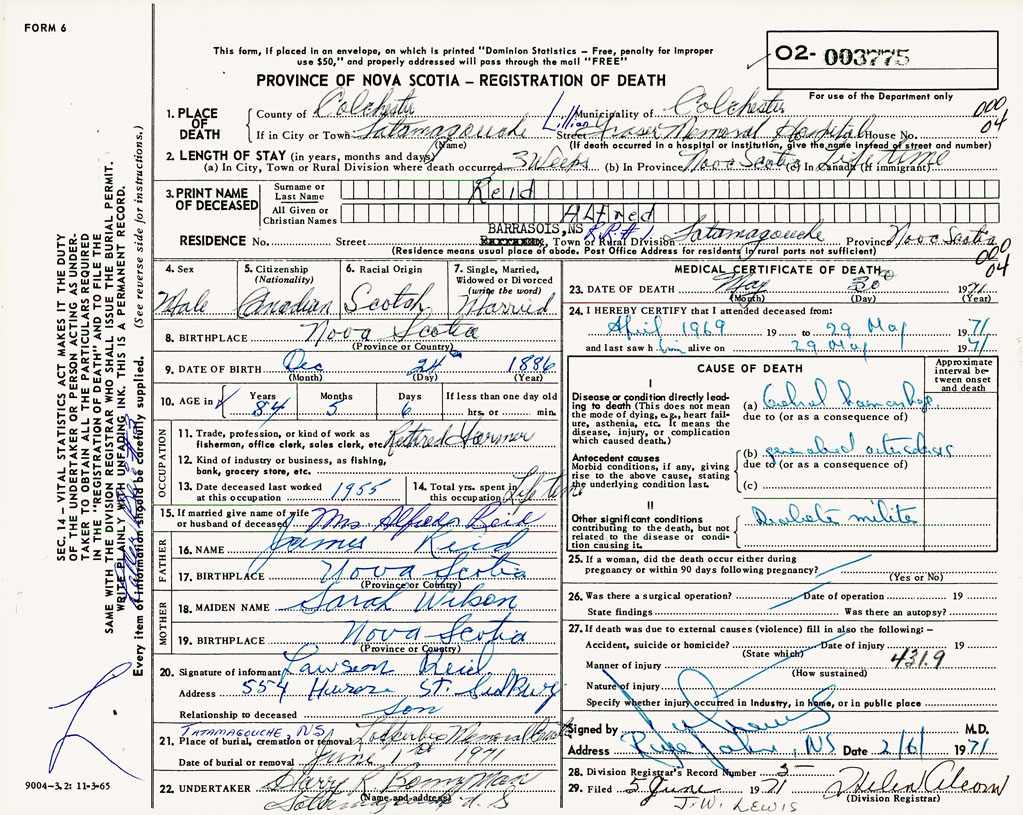 FORM 6
This form, if placed in an envelope, on which is printed "Dominion Statistics – Free, penalty for improper
use $50," and properly addressed will pass through the mail "FREE"
O2- 003775
PROVINCE OF NOVA SCOTIA – REGISTRATION OF DEATH
For use of the Department only
000
04
1. PLACE OF DEATH
County of Colchester Municipality of Colchester
If in City or Town Tatamagouche Street Lillian Fraser Memorial Hospital House No.
(Name) (If death occurred in a hospital or institution, give the name instead of street and number)
2. LENGTH OF STAY (in years, months and days)
(a) In City, Town or Rural Division where death occurred 3 Weeks (b) In Province Nova Scotia (c) In Canada (if immigrant) Lifetime
3. PRINT NAME OF DECEASED
Surname or Last Name Reid
All Given or Christian Names Alfred
BARRASOIS, NS R.R.#1
RESIDENCE No. Street , Town or Rural Division Tatamagouche Province Nova Scotia
(Residence means usual place of abode. Post Office Address for residents in rural parts not sufficient)
000
04
4. Sex Male
5. Citizenship (Nationality) Canadian
6. Racial Origin Scotch
7. Single, Married, Widowed or Divorced (write the word) Married
8. BIRTHPLACE Nova Scotia
(Province or Country)
9. DATE OF BIRTH Dec 24 1886
(Month) (Day) (Year)
10. AGE in Years 84 Months 5 Days 6 If less than one day old hrs. or min.
OCCUPATION
11. Trade, profession, or kind of work as fisherman, office clerk, sales clerk, etc. Retired Farmer
12. Kind of industry or business, as fishing, bank, grocery store, etc.
13. Date deceased last worked at this occupation 1955
14. Total yrs. spent in this occupation Life time
15. If married give name of wife or husband of deceased Mrs Alfreda Reid
FATHER
16. NAME James Reid
17. BIRTHPLACE Nova Scotia
(Province or Country)
MOTHER
18. MAIDEN NAME Sarah Wilson
19. BIRTHPLACE Nova Scotia
(Province or Country)
20. Signature of informant Lawson Reid
Address 554 St. Sudbury
Relationship to deceased son
TATAMAGOUCHE, NS
21. Place of burial, cremation or removal Memorial
Date of burial or removal June 1st 1971
22. UNDERTAKER Harry R. Bonnyman
(Name and address)
Tatamagouche N.S
MEDICAL CERTIFICATE OF DEATH
23. DATE OF DEATH May 30 1971
(Month) (Day) (Year)
24. I HEREBY CERTIFY that I attended deceased from:
April 1969 19 to 29 May 1971
and last saw him alive on 29 May 1971
CAUSE OF DEATH
Approximate interval between onset and death
I
Disease or condition directly leading to death (This does not mean the mode of dying, e.g., heart failure, asthenia, etc. It means the disease, injury, or complication which caused death.)
(a) Cerebral haemorrhage
due to (or as a consequence of)
Antecedent causes
Morbid conditions, if any, giving rise to the above cause, stating the underlying condition last.
(b) generalised
due to (or as a consequence of)
(c)
II
Other significant conditions
contributing to the death, but not related to the disease or condition causing it.
25. If a woman, did the death occur either during
pregnancy or within 90 days following pregnancy?
(Yes or No)
26. Was there a surgical operation? Date of operation 19
State findings Was there an autopsy?
27. If death was due to external causes (violence) fill in also the following: –
Accident, suicide or homicide? Date of injury 19
(State which)
Manner of injury 431.9
(How sustained)
Nature of injury
Specify whether injury occurred in Industry, in home, or in public place
Signed by M.D.
Address River John, NS Date 2/6/ 1971
28. Division Registrar's Record Number 5
29. Filed 5 June 1971 Helen Alcorn
(Division Registrar)
J.W. LEWIS
SEC. 14 – VITAL STATISTICS ACT MAKES IT THE DUTY
OF THE UNDERTAKER OR PERSON ACTING AS UNDER-
TAKER TO OBTAIN ALL THE PARTICULARS REQUIRED
IN THE "REGISTRATION OF DEATH" AND TO FILE THE
SAME WITH THE DIVISION REGISTRAR WHO SHALL ISSUE THE BURIAL PERMIT.
WRITE PLAINLY WITH UNFADING INK. THIS IS A PERMANENT RECORD.
Every item of information should be carefully supplied. (See reverse side for instructions.)
9004–3.2: 11-3-65